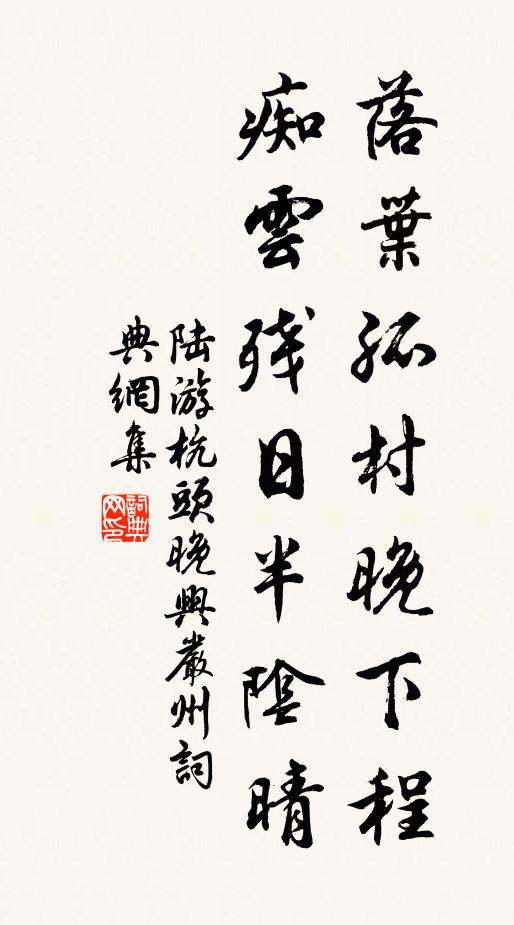 落葉孤村晚下程
痴雲殘日半陰晴
陆游杭頭晚興嚴州詞
典網集
詞典網印